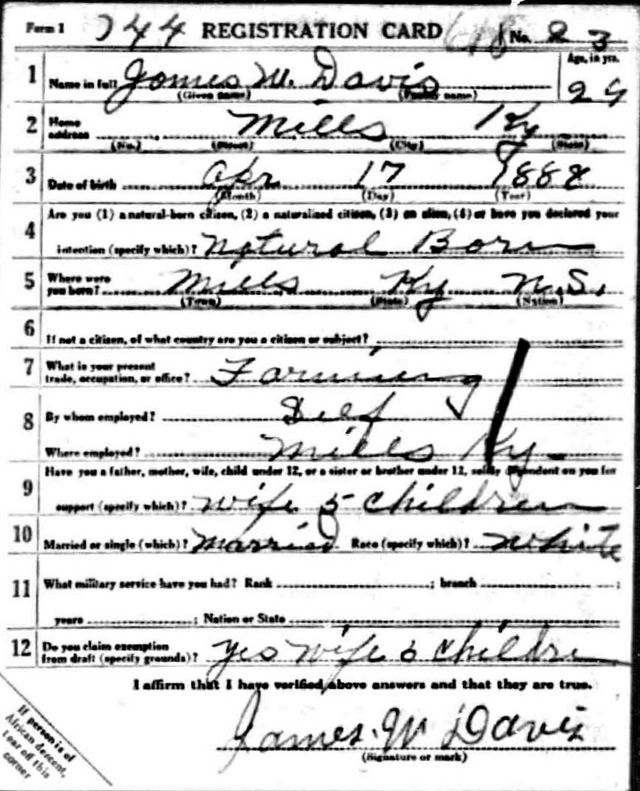 Form 1 744 REGISTRATION CARD No. 23
1 Name in full James W. Davis Age, in yrs. 29
(Given name) (Family name)
2 Home address Mills Ky
(No.) (Street) (City) (State)
3 Date of birth Apr 17 1888
(Month) (Day) (Year)
Are you (1) a natural-born citizen, (2) a naturalized citizen, (3) an alien, (4) or have you declared your
4 intention (specify which)? Natural Born
5 Where were you born? Mills Ky U.S.
(Town) (State) (Nation)
6 If not a citizen, of what country are you a citizen or subject?
7 What is your present trade, occupation, or office? Farming
8 By whom employed? Self
Where employed? Mills Ky
Have you a father, mother, wife, child under 12, or a sister or brother under 12, solely dependent on you for
9 support (specify which)? Wife 5 children
10 Married or single (which)? Married Race (specify which)? White
11 What military service have you had? Rank ; branch ;
years ; Nation or State
12 Do you claim exemption from draft (specify grounds)? Yes Wife 5 childre
I affirm that I have verified above answers and that they are true.
James W Davis
(Signature or mark)
If person is of
African descent,
tear off this
corner